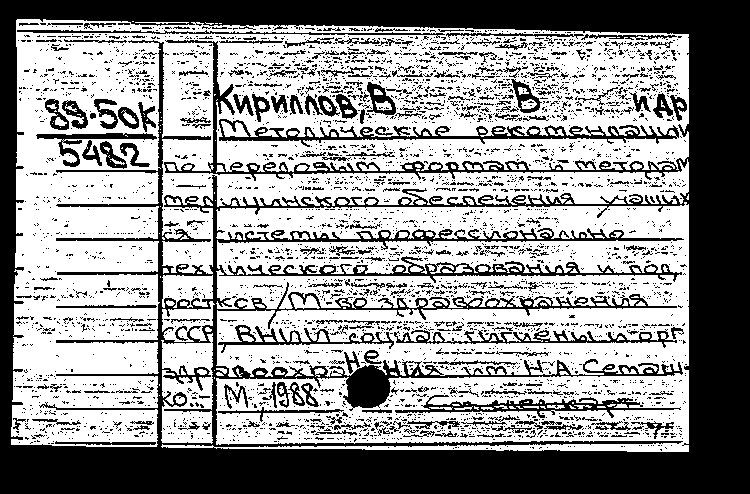 89-50К
5482
Кириллов, В В и др
Методические рекомендации
по передовым формам и методам
медицинского обеспечения учащих
ся системы профессионально
технического образования и под
ростков / М-во здравоохранения
СССР, ВНИИ социал. гигиены и орг
не
здравоохранения им. Н.А. Семаш-
ко.- М., 1988.